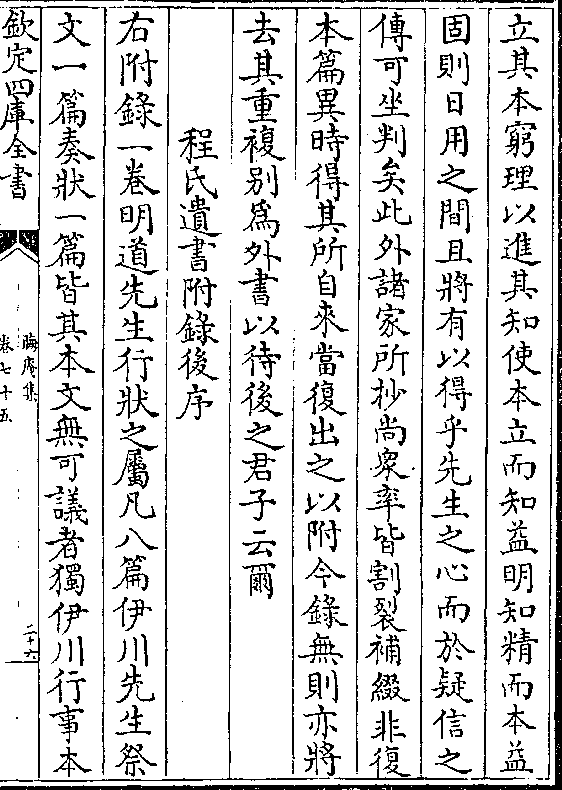 立其本窮理以進其知使本立而知益明知精而本益
固則日用之間且將有以得乎先生之心而於疑信之
傳可坐判矣此外諸家所抄尚衆率皆割裂補綴非復
本篇異時得其所自來當復出之以附今錄無則亦將
去其重複别為外書以待後之君子云爾
程氏遺書附錄後序
右附錄一卷明道先生行狀之屬凡八篇伊川先生祭
文一篇奏狀一篇皆其本文無可議者獨伊川行事本
欽定四庫全書
晦庵集
卷七十五
二十六